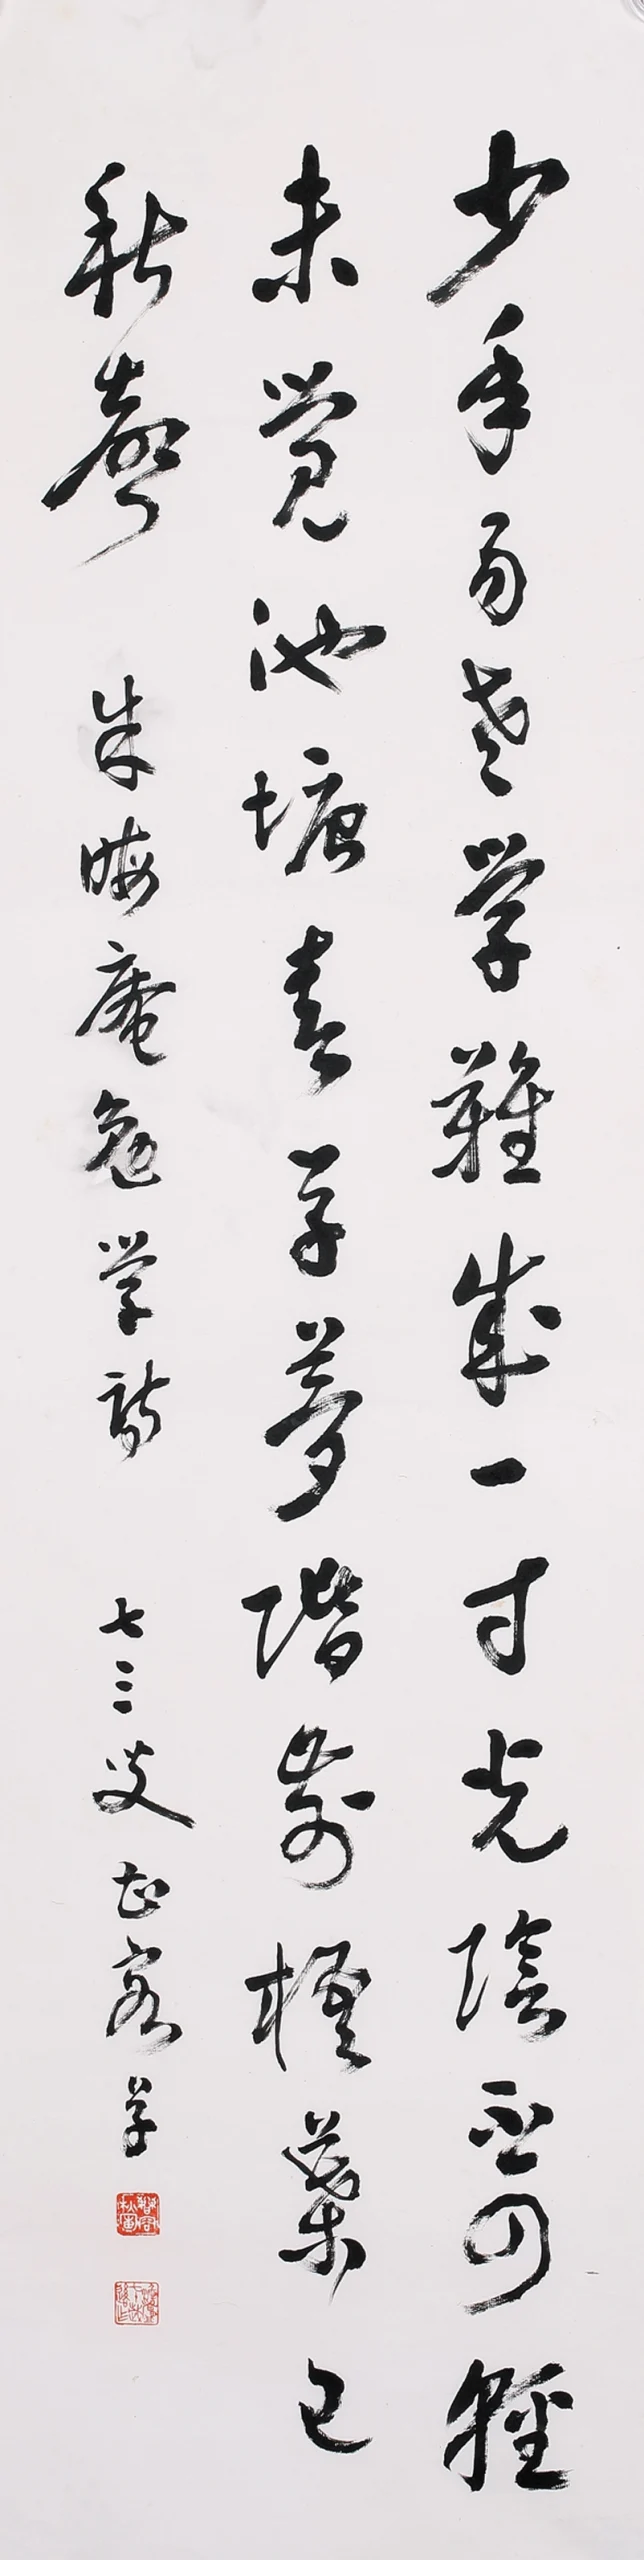 少年易老學難成一寸光陰不可輕
未覺池塘春草夢階前梧葉已
秋聲 朱晦庵勉学詩 七三叟